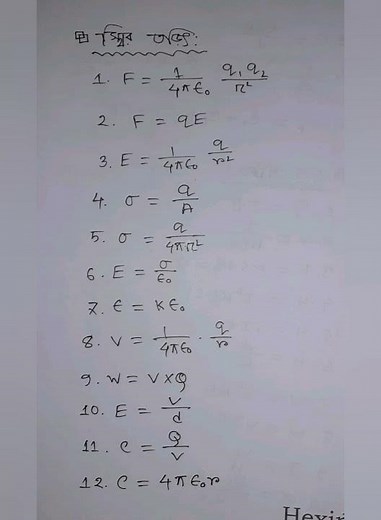 স্থির তড়িৎ:
1. F = 1/4πϵ₀ q₁q₂/r²
2. F = qE
3. E = 1/4πϵ₀ q/r²
4. σ = q/A
5. σ = q/4πr²
6. E = σ/ϵ₀
7. ϵ = Kϵ₀
8. V = 1/4πϵ₀ · q/r
9. W = V×Q
10. E = V/d
11. C = Q/V
12. C = 4πϵ₀r